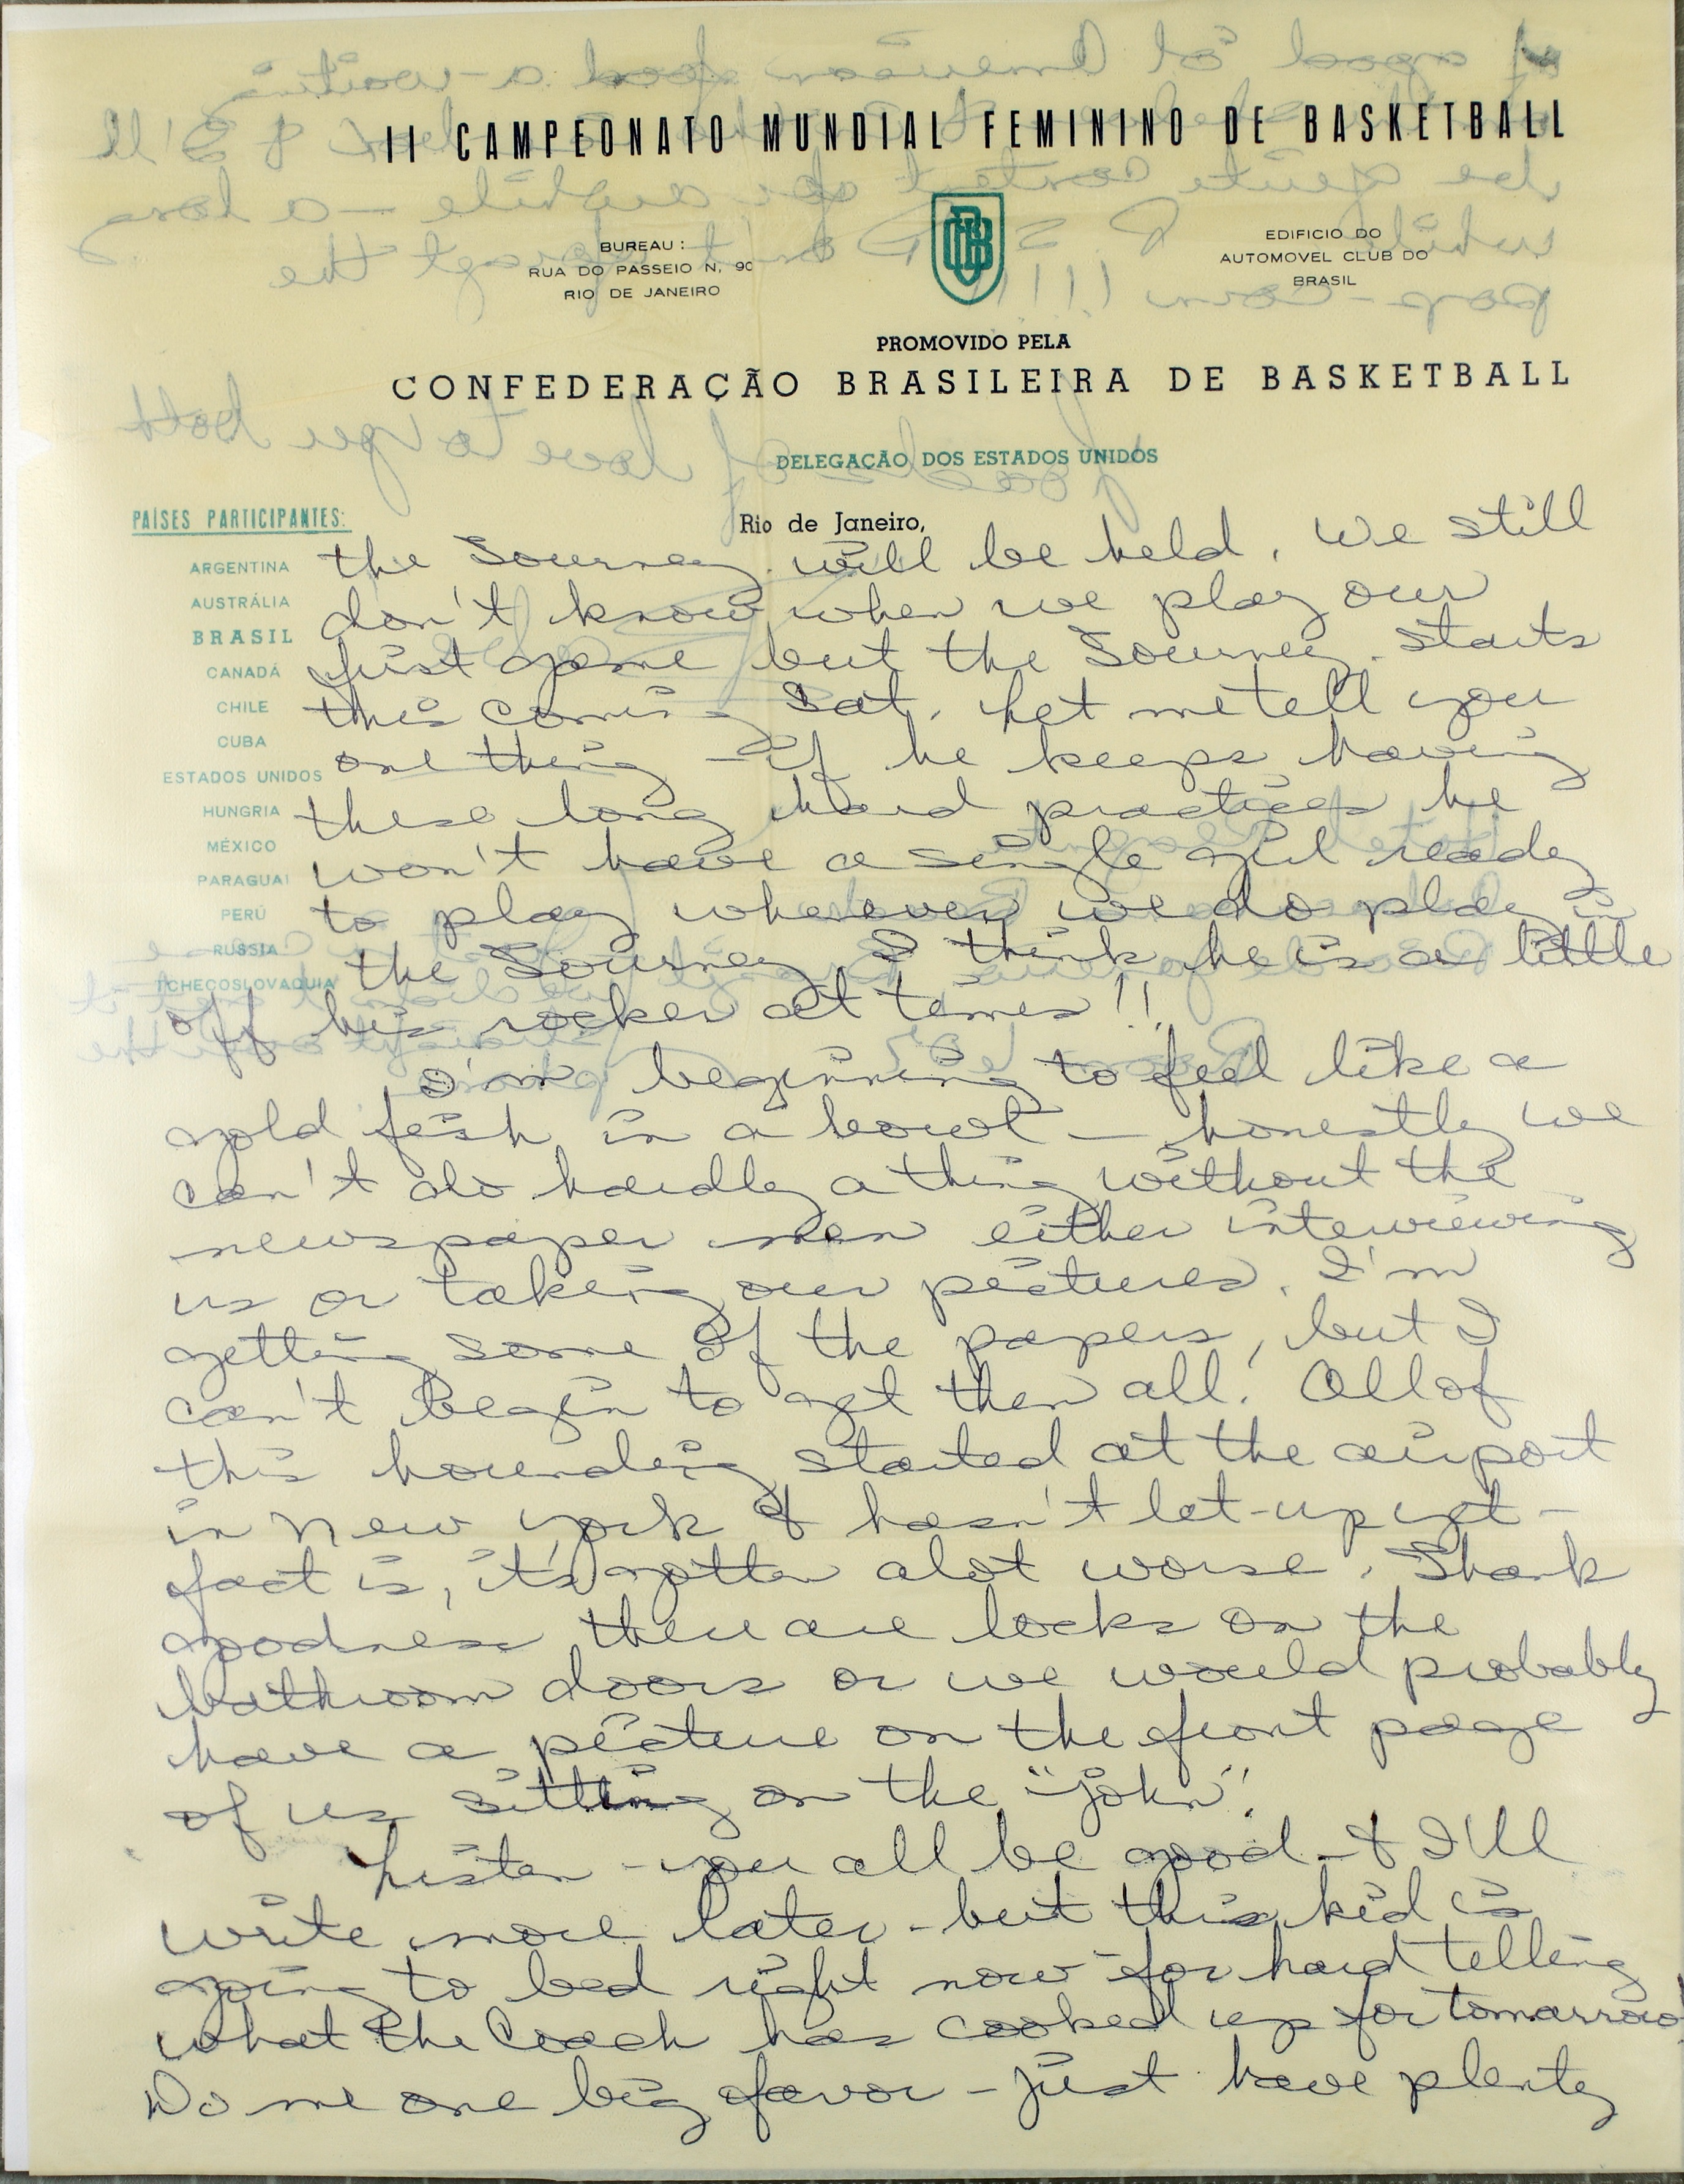 II CAMPEONATO MUNDIAL FEMININO DE BASKETBALL
BUREAU :
RUA DO PASSEIO N, 90
RIO DE JANEIRO
CBB
EDIFICIO DO
AUTOMOVEL CLUB DO
BRASIL
PROMOVIDO PELA
CONFEDERAÇÃO BRASILEIRA DE BASKETBALL
DELEGAÇÃO DOS ESTADOS UNIDOS
PAÍSES PARTICIPANTES:
ARGENTINA
AUSTRÁLIA
BRASIL
CANADÁ
CHILE
CUBA
ESTADOS UNIDOS
HUNGRIA
MÉXICO
PARAGUAI
PERÚ
RUSSIA
TCHECOSLOVAQUIA
Rio de Janeiro,
the Tourney. will be held. We still
don't know when we play our
first game but the Tourney. starts
this coming Sat. Let me tell you
one thing - if he keeps having
these long hard practices he
won't have a single girl ready
to play whenever we do play in
the Tourney. I think he is a little
off his rocker at times!!
I'm beginning to feel like a
gold fish in a bowl - honestly we
can't do hardly a thing without the
newspaper men either interviewing
us or taking our pictures. I'm
getting some of the papers, but I
can't begin to get them all! All of
this hounding started at the airport
in New York & hasn't let-up yet -
fact is, it's gotten alot worse. Thank
goodness there are locks on the
bathroom doors or we would probably
have a picture on the front page
of us sitting on the "john"!
Listen - you all be good - & I'll
write more later - but this kid is
going to bed right now - for hard telling
what the Coach has cooked up for tomarrow!
Do me one big favor - just have plenty